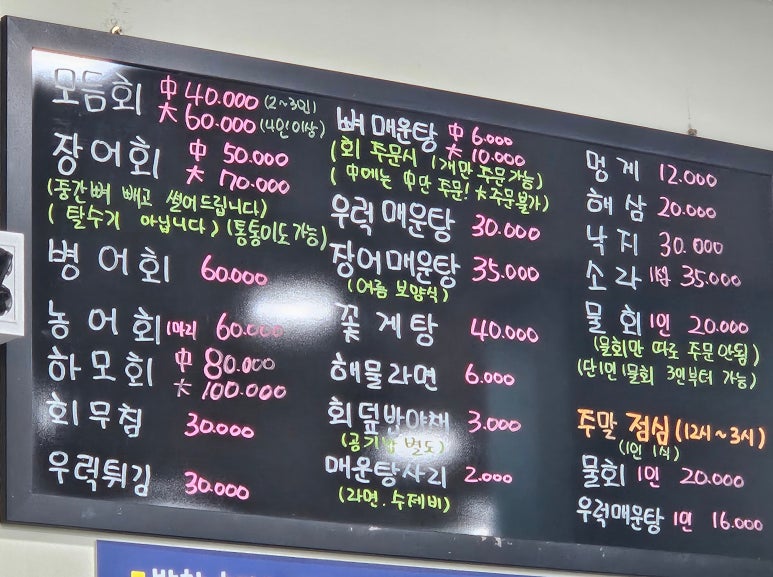 모듬회 中 40.000 (2~3인)
大 60.000 (4인이상)
장어회 中 50.000
大 70.000
(중간뼈 빼고 썰어드립니다)
(탈수기 아닙니다) (통통이도가능)
병어회 60.000
농어회 1마리 60.000
하모회 中 80.000
大 100.000
회무침 30.000
우럭튀김 30.000
뼈매운탕 中 6.000
大 10.000
(회 주문시 1개만 주문가능)
(中에는 中만 주문! 大주문불가)
우럭매운탕 30.000
장어매운탕 35.000
(여름 보양식)
꽃게탕 40.000
해물라면 6.000
회덮밥야채 3.000
(공기밥 별도)
매운탕사리 2.000
(라면.수제비)
멍게 12.000
해삼 20.000
낙지 30.000
소라 1접 35.000
물회 1인 20.000
(물회만 따로 주문 안됨)
(단1인 1물회 3인부터 가능)
주말 점심 (12시~3시)
(1인 1식)
물회 1인 20.000
우럭매운탕 1인 16.000